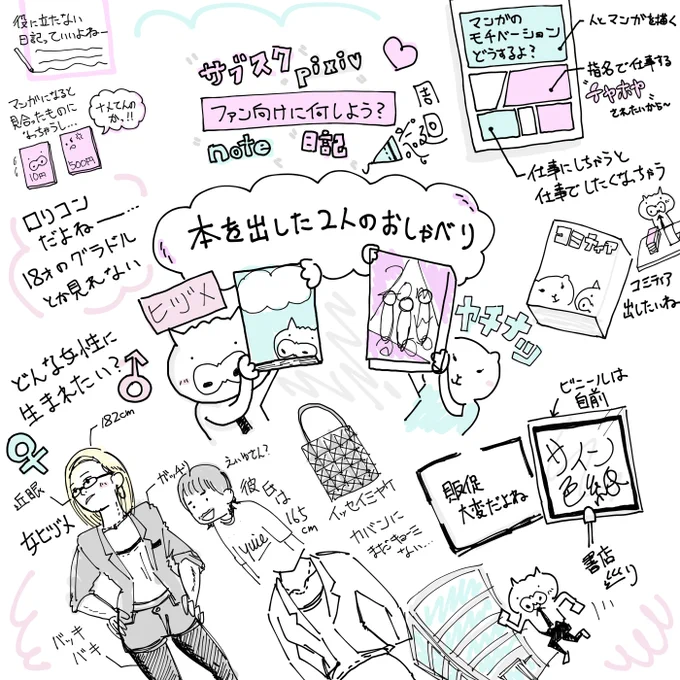 役に立たない
日記っていいよねー
マンガになると
見合ったものに
なっちゃうし…
なんてんの
か、!!
10円
500円
ロリコン
だよねー…
18才のグラドル
とか見れない
サブスク
pixiv
ファン向けに何しよう?
note
日記
週
マンガの
モチベーション
どうするよ?
人とマンガを描く
指名で仕事する
チヤホヤ
されたいから〜
仕事にしちゃうと
仕事でしたくなっちゃう
本を出した2人のおしゃべり
ヒヅメ
ヤチナツ
コミティア
コミティア
出したいね
どんな女性に
生まれたい?
182cm
近眼
女ヒヅメ
ガッチリ
バッキ
バキ
えいゆさん?
彼氏は
165
cm
yuie
イッセイミヤケ
カバンに
まだ
ない…
販促
大変だよね
ビニールは
自前
サイン
色紙
書店
巡り